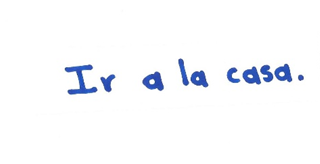 Ir a la casa.